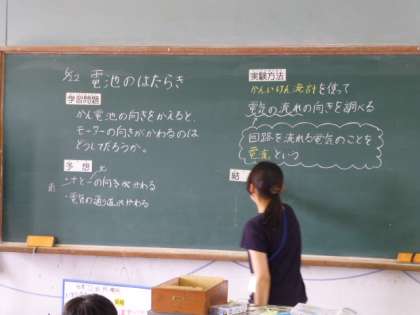 5/22 電池のはたらき
学習問題
かん電池の向きをかえると、
モーターの向きがかわるのは
どうしてだろうか。
予想
・モーターの向きがかわる
・電気の通り道がかわる
実験方法
かんいけん流計を使って
電気の流れの向きを調べる
回路を流れる電気のことを
電流という
結